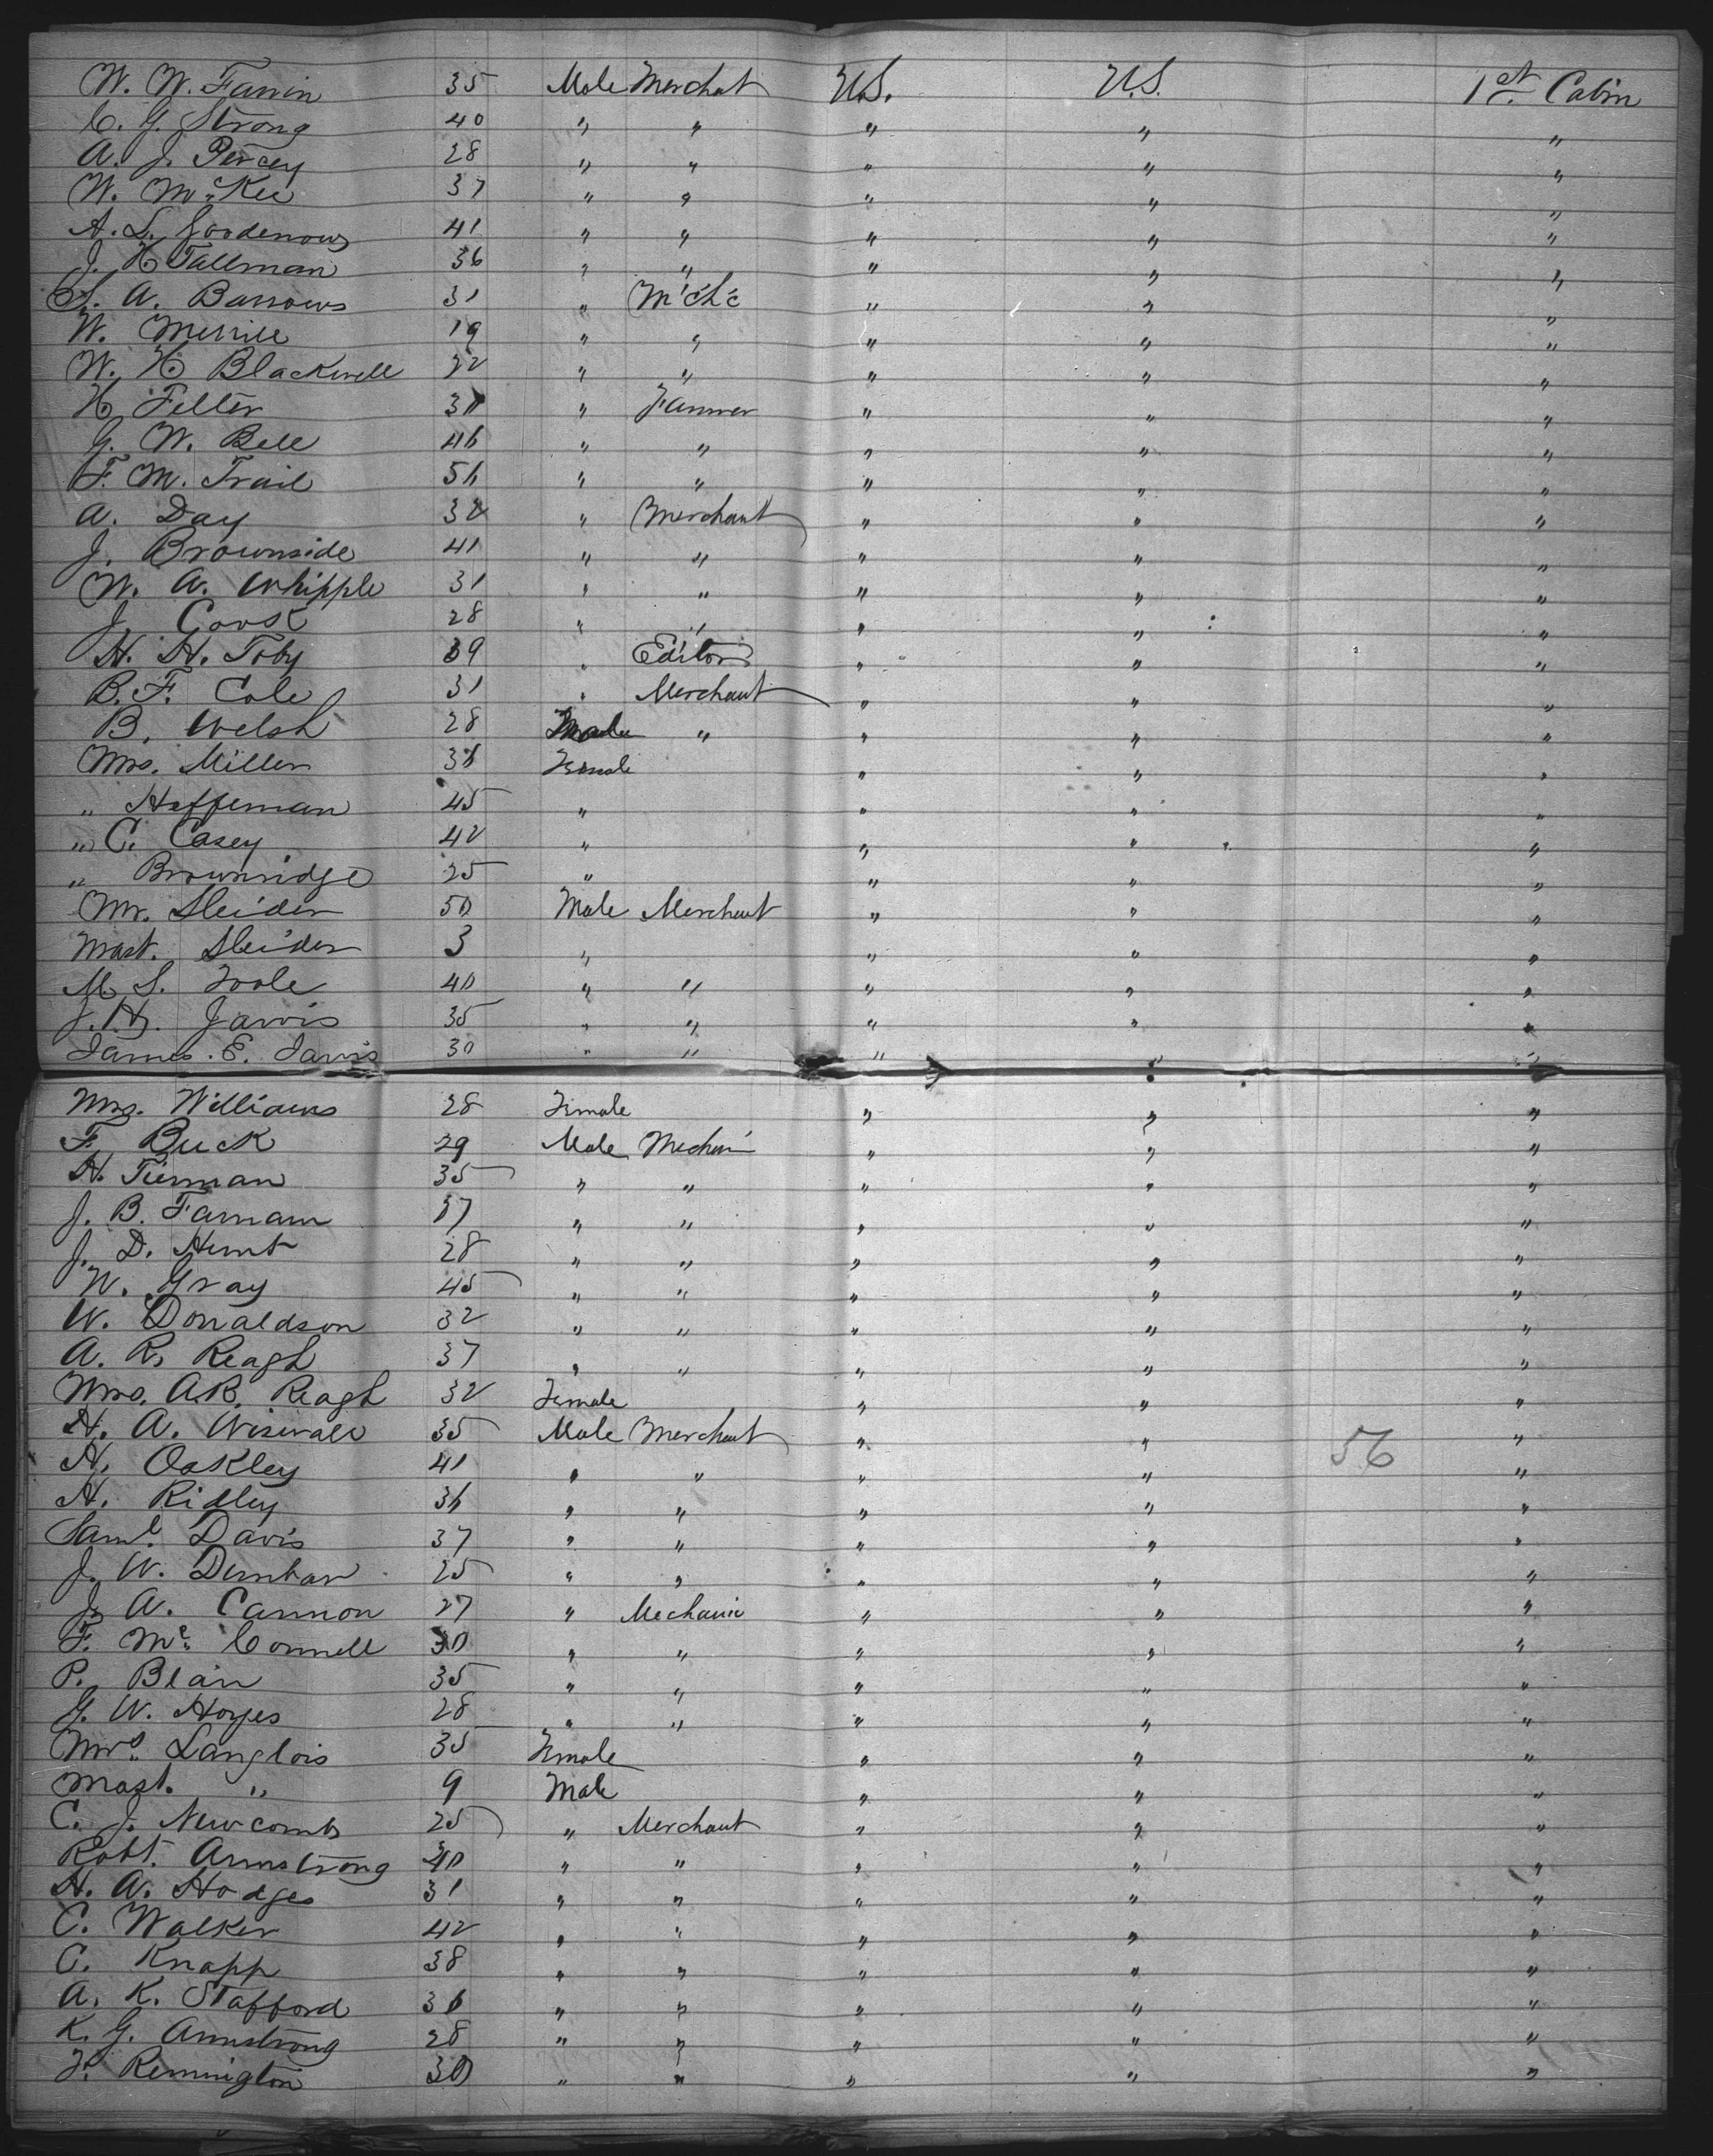 W. W. Farrin 35 Male Merchat U.S. U.S. 1st. Cabin
C. G. Strong 40 " " " " "
A. J. Percey 28 " " " " "
W. McKee 37 " " " " "
A. L. Goodenows 41 " " " " "
J. H Tallman 36 " " " " "
S. A. Barrows 31 " M'ch'c " " "
W. Merrill 19 " " " " "
W. H Blackwell 22 " " " " "
H. Felter 30 " Farmer " " "
G. W. Bell 46 " " " " "
F. M. Trail 56 " " " " "
A. Day 32 " Merchant " " "
J. Brownside 41 " " " " "
W. A. Whipple 31 " " " " "
J. Cook 28 " " " " "
H. H. Toby 39 " Editor " " "
B. F. Cole 31 " Merchant " " "
B. Welsh 28 Male " " " "
Mrs. Miller 36 Female " " "
" Haffernan 45 " " " "
" C. Casey 42 " " " "
" Brownridge 25 " " " "
Mr. Sleider 50 Male Merchant " " "
Mast. Sleider 3 " " " "
M. S. Toole 40 " " " " "
J. H. Jarvis 35 " " " " "
James. E. Jarvis 30 " " " " "
Mrs. Williams 28 Female " " "
F. Buck 29 Male Mechani " " "
H. Tierman 35 " " " " "
J. B. Farnam 37 " " " " "
J. D. Hunt 28 " " " " "
W. Gray 45 " " " " "
W. Donaldson 32 " " " " "
A. R. Reagh 37 " " " " "
Mrs. A.R. Reagh 32 Female " " "
H. A. Wiswall 35 Male Merchant " " 56 "
H. Oakley 41 " " " " "
H. Ridley 36 " " " " "
Saml. Davis 37 " " " " "
J. W. Dunbar 25 " " " " "
J. A. Cannon 27 " Mechanic " " "
F. Mc. Connell 30 " " " " "
P. Blain 35 " " " " "
G. W. Noyes 28 " " " " "
Mrs. Langlois 35 Female " " "
Mast. " 9 Male " " "
C. J. Newcomb 25 " Merchant " " "
Robt. Armstrong 40 " " " " "
H. A. Hodges 31 " " " " "
C. Walker 42 " " " " "
C. Knapp 38 " " " " "
A. K. Stafford 36 " " " " "
K. G. Armstrong 28 " " " " "
F. Remington 30 " " " " "